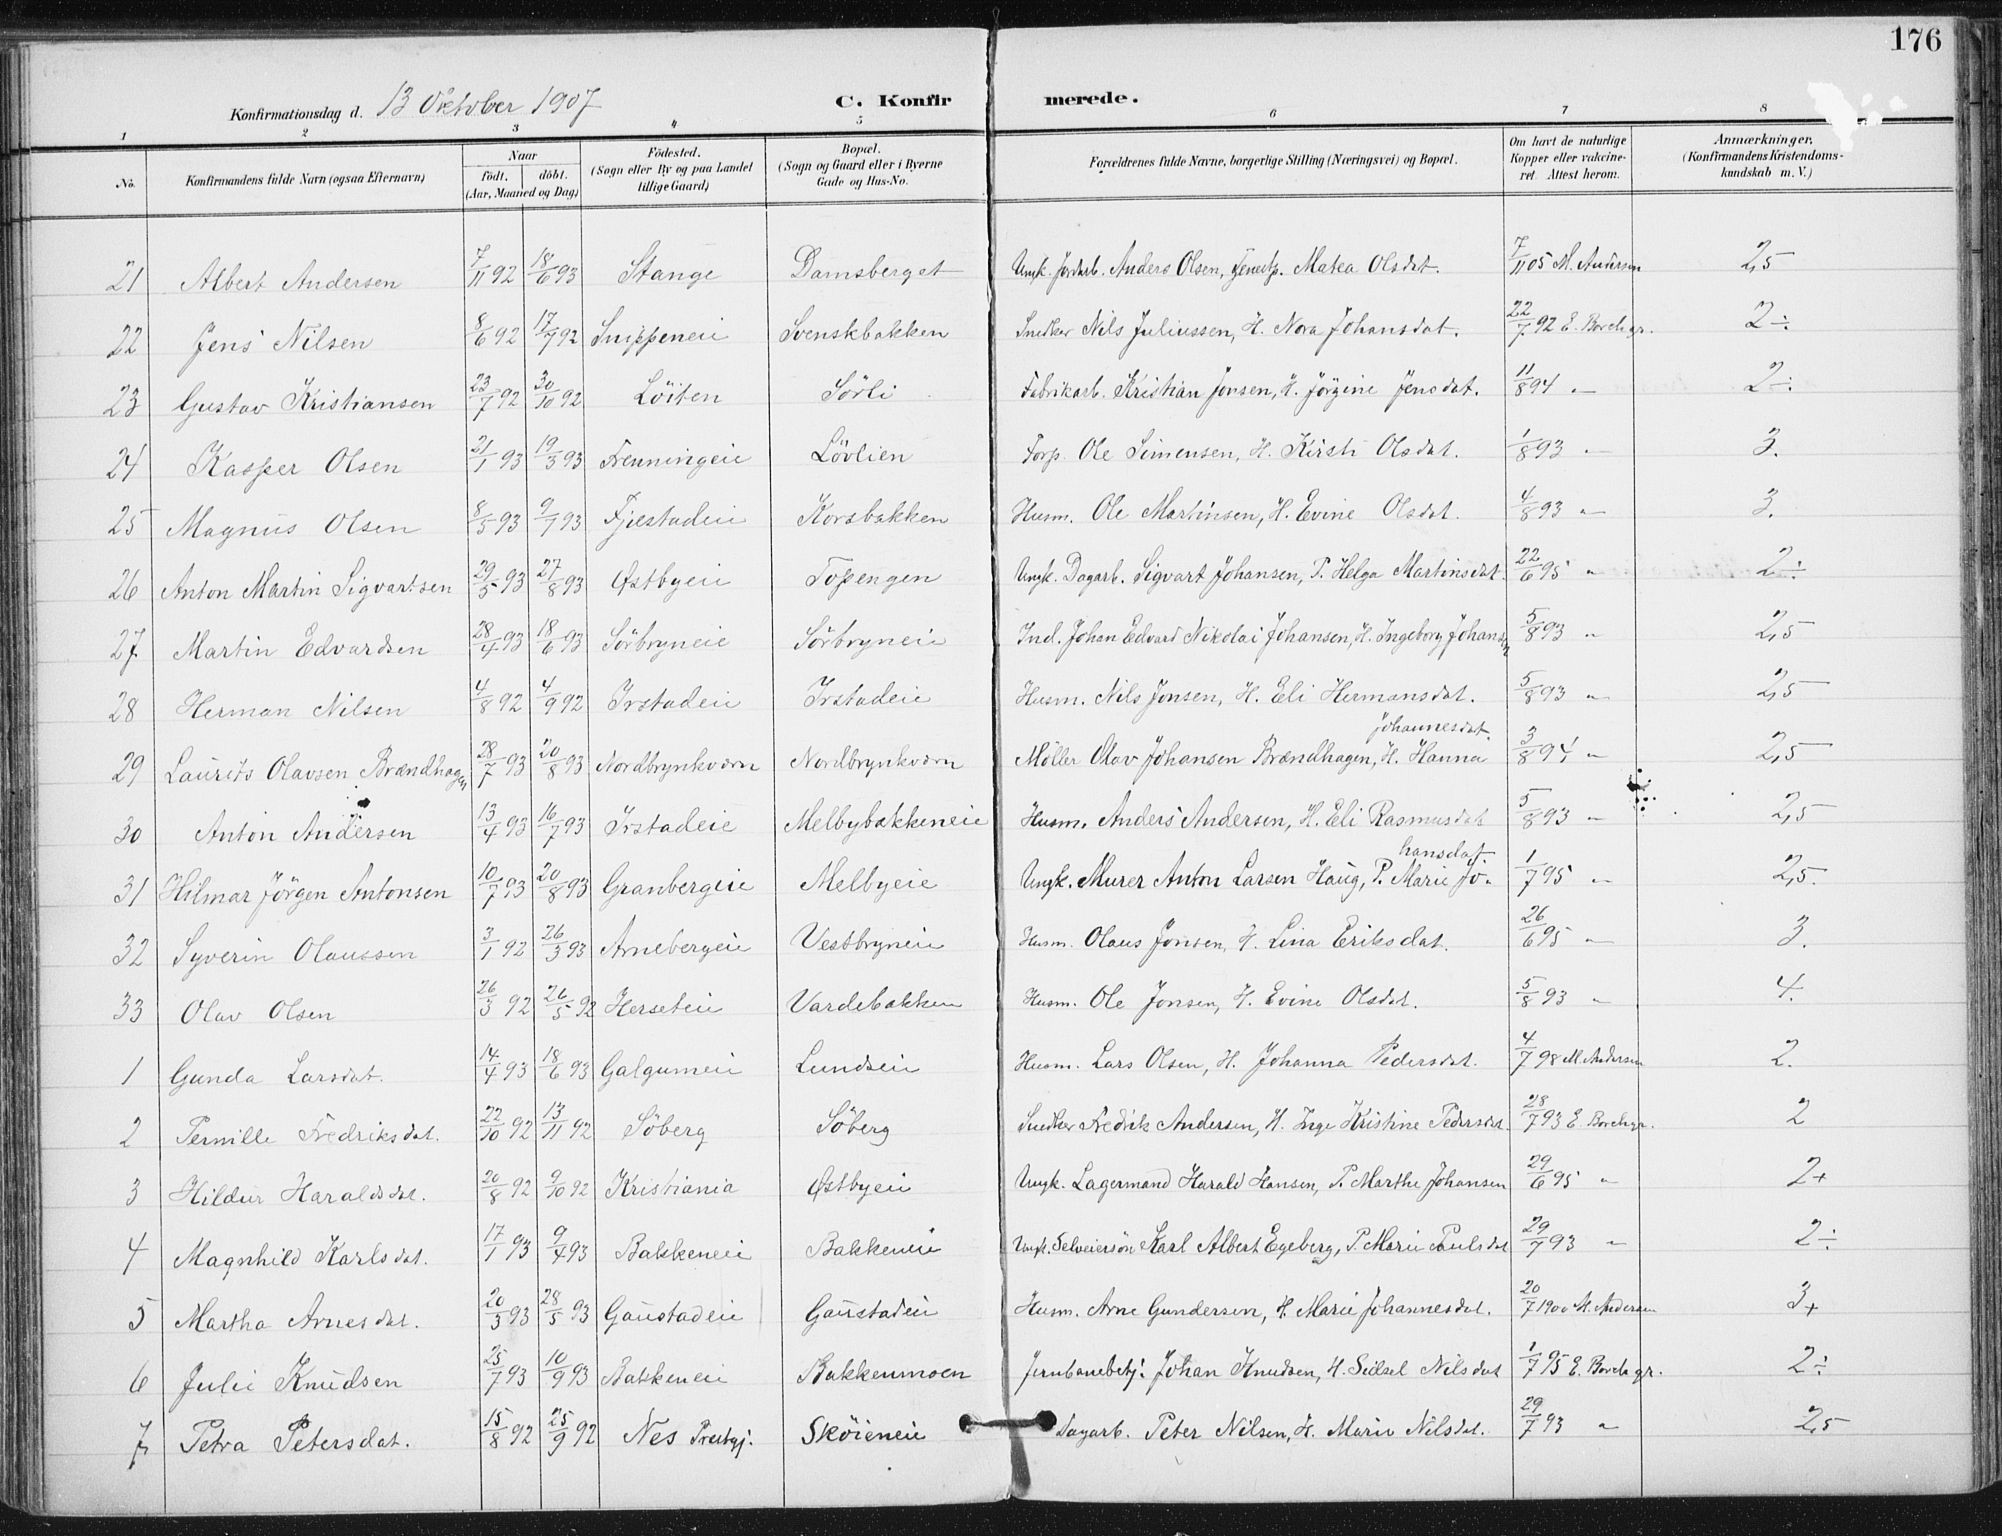 176
Konfirmationsdag d. 13 Oktober 1907
C. Konfir merede.
1 2 3 4 5 6 7 8
No. Konfirmandens fulde Navn (ogsaa Efternavn) Naar födt. döbt. (Aar, Maaned og Dag) Födested. (Sogn eller By og paa Landet tillige Gaard) Bopæl. (Sogn og Gaard eller i Byerne Gade og Hus-No. Forældrenes fulde Navne, borgerlige Stilling (Næringsvei) og Bopæl. Om havt de naturlige Kopper eller vakcineret. Attest herom. Anmærkninger. (Konfirmandens Kristendomskundskab m. V.)
21 Albert Andersen 7/11 92 18/6 93 Stange Damsberget Ungk. Jordarb. Anders Olsen, Matea Olsdat. 7/11 05 M. Andersen 2,5
22 Jens Nilsen 8/6 92 17/7 92 Snippeneie Svenskbakken Snedker Nils Juliussen, H. Nora Johansdat. 22/7 92 E. Borchgr. 2÷
23 Gustav Kristiansen 23/7 92 30/10 92 Löiten Sörli Fabrikarb. Kristian Jonsen, H. Jörgine Jensdat. 11/8 94 " 2÷
24 Kasper Olsen 21/1 93 19/3 93 Frenningeie Lövlien Forp. Ole Simensen, H. Kirsti Olsdat. 1/8 93 " 3.
25 Magnus Olsen 8/5 93 9/7 93 Fjæstadeie Korsbakken Husm. Ole Martinsen, H. Evine Olsdat. 4/8 93 " 3.
26 Anton Martin Sigvartsen 29/5 93 27/8 93 Østbyeie Topengen Ungk. Dagarb. Sigvart Johansen, P. Helga Martinsdat. 22/6 95 " 2÷
27 Martin Edvardsen 28/4 93 18/6 93 Sörbryneie Sörbryneie Ind. Johan Edvard Nikolai Johansen, H. Ingeborg Johansen 5/8 93 " 2,5
28 Herman Nilsen 4/8 92 4/9 92 Irstadeie Irstadeie Husm. Nils Jonsen, H. Eli Hermansdat. 5/8 93 " 2,5
29 Laurits Olavsen Brændhagen 28/7 93 20/8 93 Nordbrynkværn Nordbrynkværn Möller Olav Johansen Brændhagen, H. Hanna Johannesdat. 3/8 94 " 2,5
30 Anton Andersen 13/4 93 16/7 93 Irstadeie Melbybakkeneie Husm. Anders Andersen, H. Eli Rasmusdat 5/8 93 " 2,5
31 Hilmar Jörgen Antonsen 10/7 93 20/8 93 Granbergeie Melbyeie Ungk. Murer Anton Larsen Haug, P. Marie Johansdat. 1/7 95 " 2,5.
32 Syverin Olaussen 3/1 92 26/3 93 Arnebergeie Vestbryneie Husm. Olaus Jonsen, H. Lina Eriksdat. 26/6 95 " 3.
33 Olav Olsen 26/3 92 26/5 92 Herseteie Vardebakken Husm. Ole Jonsen, H. Evine Olsdat. 5/8 93 " 4.
1 Gunda Larsdat. 14/4 93 18/6 93 Galgumeie Lundseie Husm. Lars Olsen, H. Johanna Pedersdat. 4/7 98 M. Andersen 2.
2 Pernille Fredriksdat. 22/10 92 13/11 92 Söberg Söberg Snedker Fredrik Andersen, H. Inge Kristine Pedersdat. 28/7 93 E. Borchgr. 2
3 Hildur Haraldsdat. 20/8 92 9/10 92 Kristiania Østbyeie Ungk. Lagermand Harald Hansen, P. Marthe Johansen 29/6 95 " 2+
4 Magnhild Karlsdat. 17/1 93 9/4 93 Bakkeneie Bakkeneie Ungk. Selveiersön Karl Albert Egeberg, P. Marie Paulsdat 29/7 93 " 2÷
5 Martha Arnesdat. 20/3 93 28/5 93 Gaustadeie Gaustadeie Husm. Arne Gundersen, H. Marie Johannesdat. 20/7 1900 M. Andersen 3+
6 Julie Knudsen 25/7 93 10/9 93 Bakkeneie Bakkenmoen Jernbanebetj. Johan Knudsen, H. Sidsel Nilsdat 1/7 95 E. Borchgr. 2÷
7 Petra Petersdat. 15/8 92 25/9 92 Nes Prestgj. Sköieneie Dagarb. Peter Nilsen, H. Marie Nilsdat. 29/7 93 " 2,5